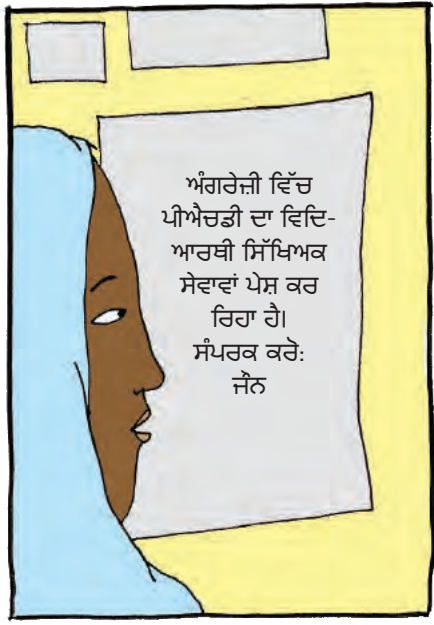 ਅੰਗਰੇਜ਼ੀ ਵਿੱਚ
ਪੀਐਚਡੀ ਦਾ ਵਿਦਿ-
ਆਰਥੀ ਸਿੱਖਿਅਕ
ਸੇਵਾਵਾਂ ਪੇਸ਼ ਕਰ
ਰਿਹਾ ਹੈ।
ਸੰਪਰਕ ਕਰੋ:
ਜੌਨ